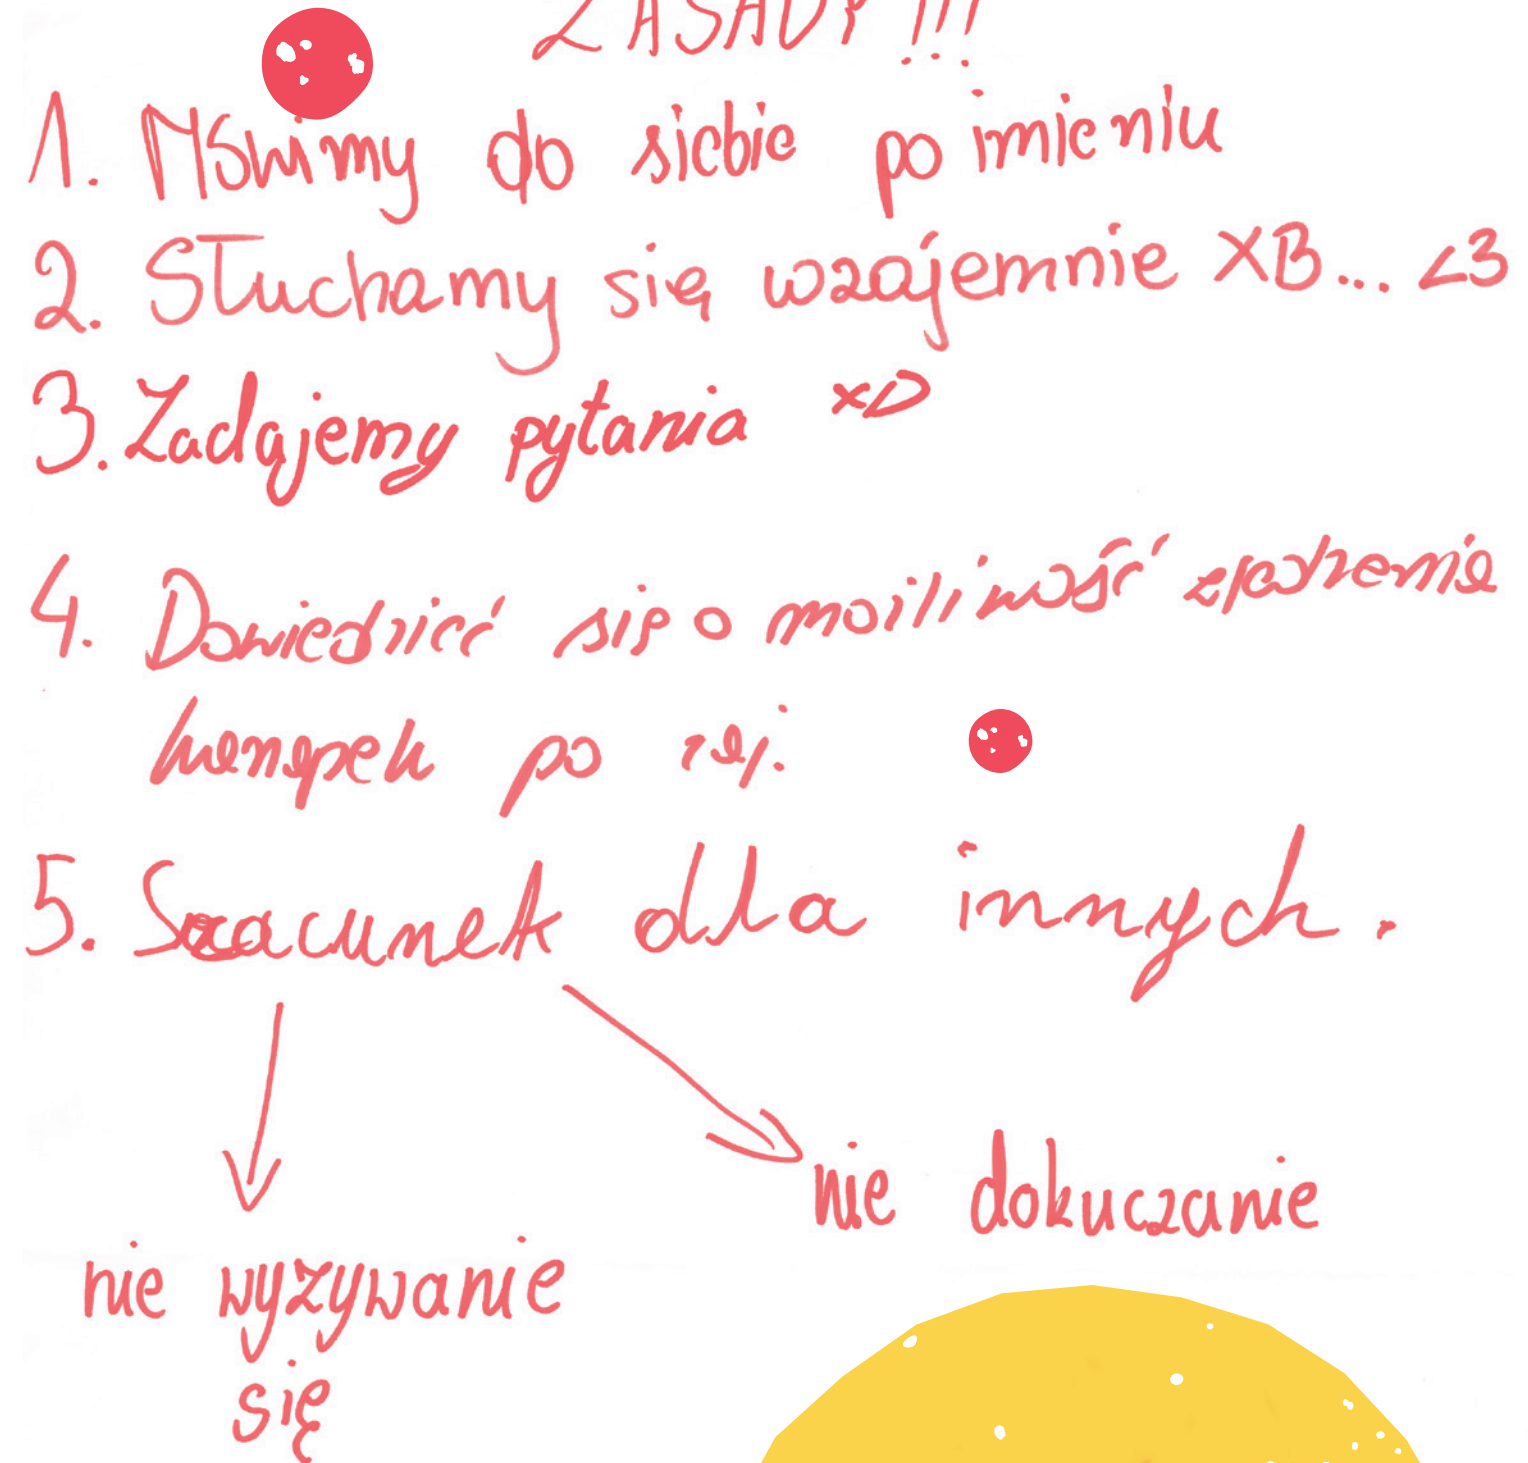 ZASADY !!!
1. Mówimy do siebie po imieniu
2. Słuchamy się wzajemnie XB... <3
3. Zadajemy pytania xD
4. Dowiedzieć się o możliwość zjedzenia
kanapek po zaj.
5. Szacunek dla innych.
nie dokuczanie
nie wyzywanie
się